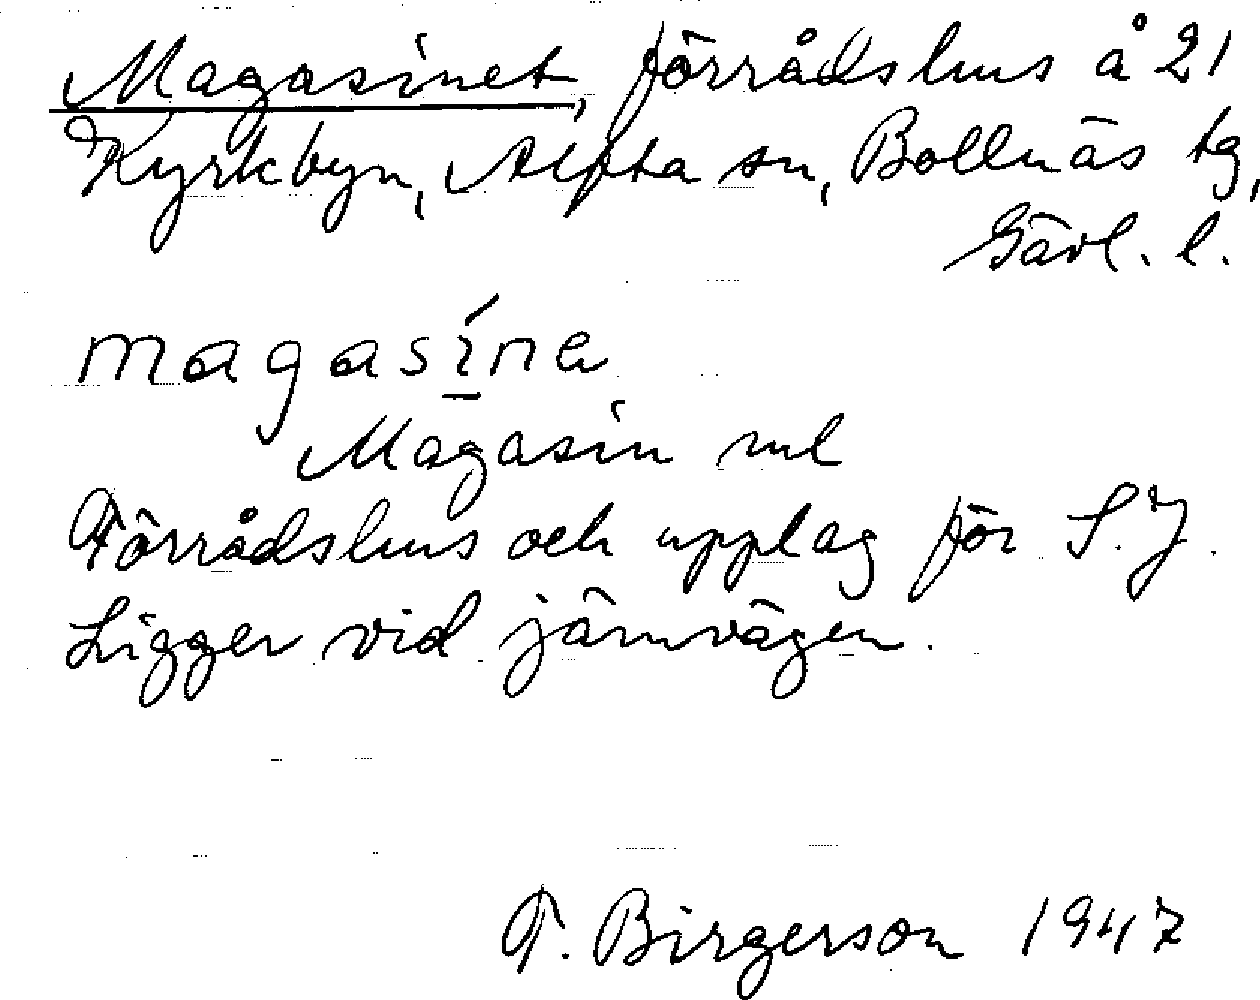 Magasinet, förrådshus å 21
Kyrkbyn, Alfta sn, Bollnäs tg,
Gävl. l.
magasína
Magasin ml
Förrådshus och upplag för S.J.
Ligger vid järnvägen.
F. Birgerson 1947